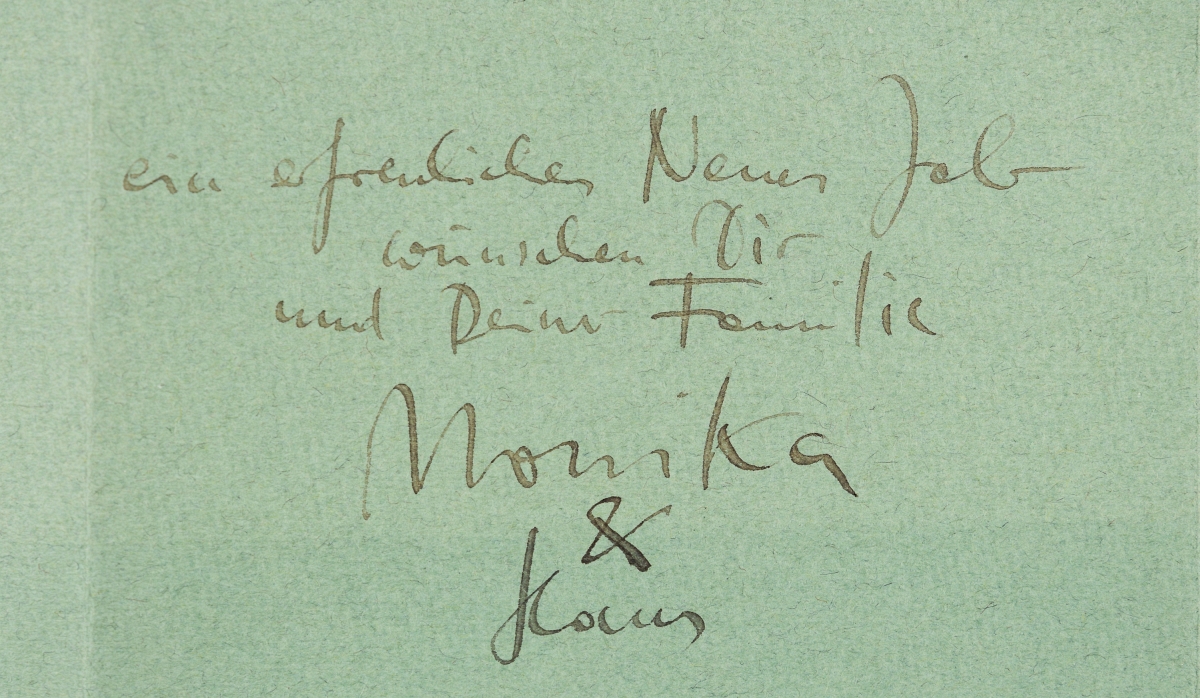 ein erfreuliches Neues Jahr
wünschen Dir
und Deiner Familie
Monika
&
Klaus